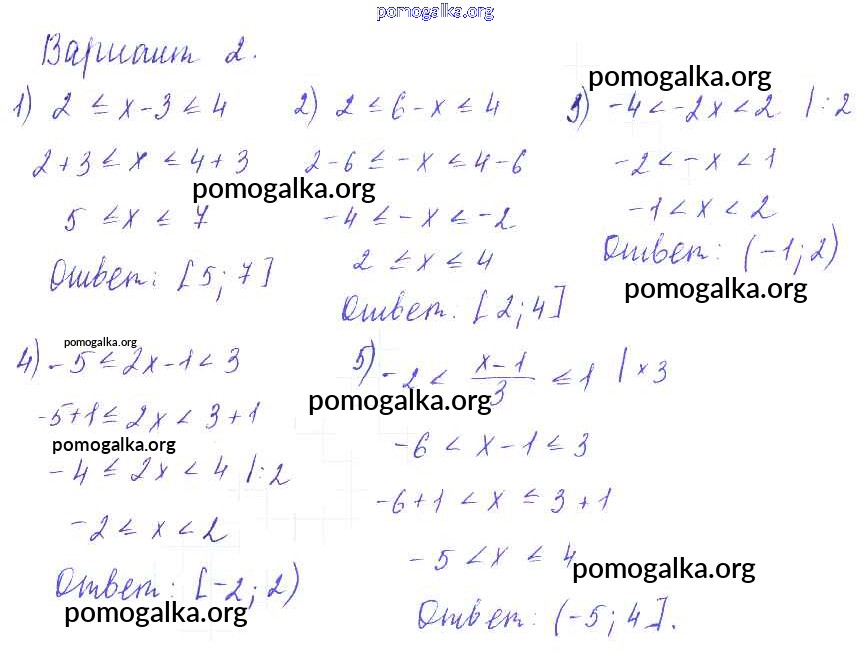 pomogalka.org
Вариант 2.
pomogalka.org
1) 2 ≤ x - 3 ≤ 4
2 + 3 ≤ x ≤ 4 + 3
pomogalka.org
5 ≤ x ≤ 7
Ответ: [5; 7]
2) 2 ≤ 6 - x ≤ 4
2 - 6 ≤ -x ≤ 4 - 6
-4 ≤ -x ≤ -2
2 ≤ x ≤ 4
Ответ: [2; 4]
3) -4 < -2x < 2 | : 2
-2 < -x < 1
-1 < x < 2
Ответ: (-1; 2)
pomogalka.org
pomogalka.org
4) -5 ≤ 2x - 1 < 3
-5 + 1 ≤ 2x < 3 + 1
pomogalka.org
-4 ≤ 2x < 4 | : 2
-2 ≤ x < 2
Ответ: [-2; 2)
pomogalka.org
5) -2 < (x - 1)/3 ≤ 1 | × 3
pomogalka.org
-6 < x - 1 ≤ 3
-6 + 1 < x ≤ 3 + 1
-5 < x ≤ 4
pomogalka.org
Ответ: (-5; 4].